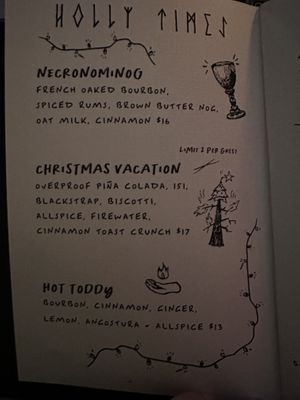 HOLLY TIMES
NECRONOMINOG
FRENCH OAKED BOURBON,
SPICED RUMS, BROWN BUTTER NOG,
OAT MILK, CINNAMON $16
LIMIT 2 PER GUEST
CHRISTMAS VACATION
OVERPROOF PIÑA COLADA, 151,
BLACKSTRAP, BISCOTTI,
ALLSPICE, FIREWATER,
CINNAMON TOAST CRUNCH $17
HOT TODDY
BOURBON, CINNAMON, GINGER,
LEMON, ANGOSTURA - ALLSPICE $13